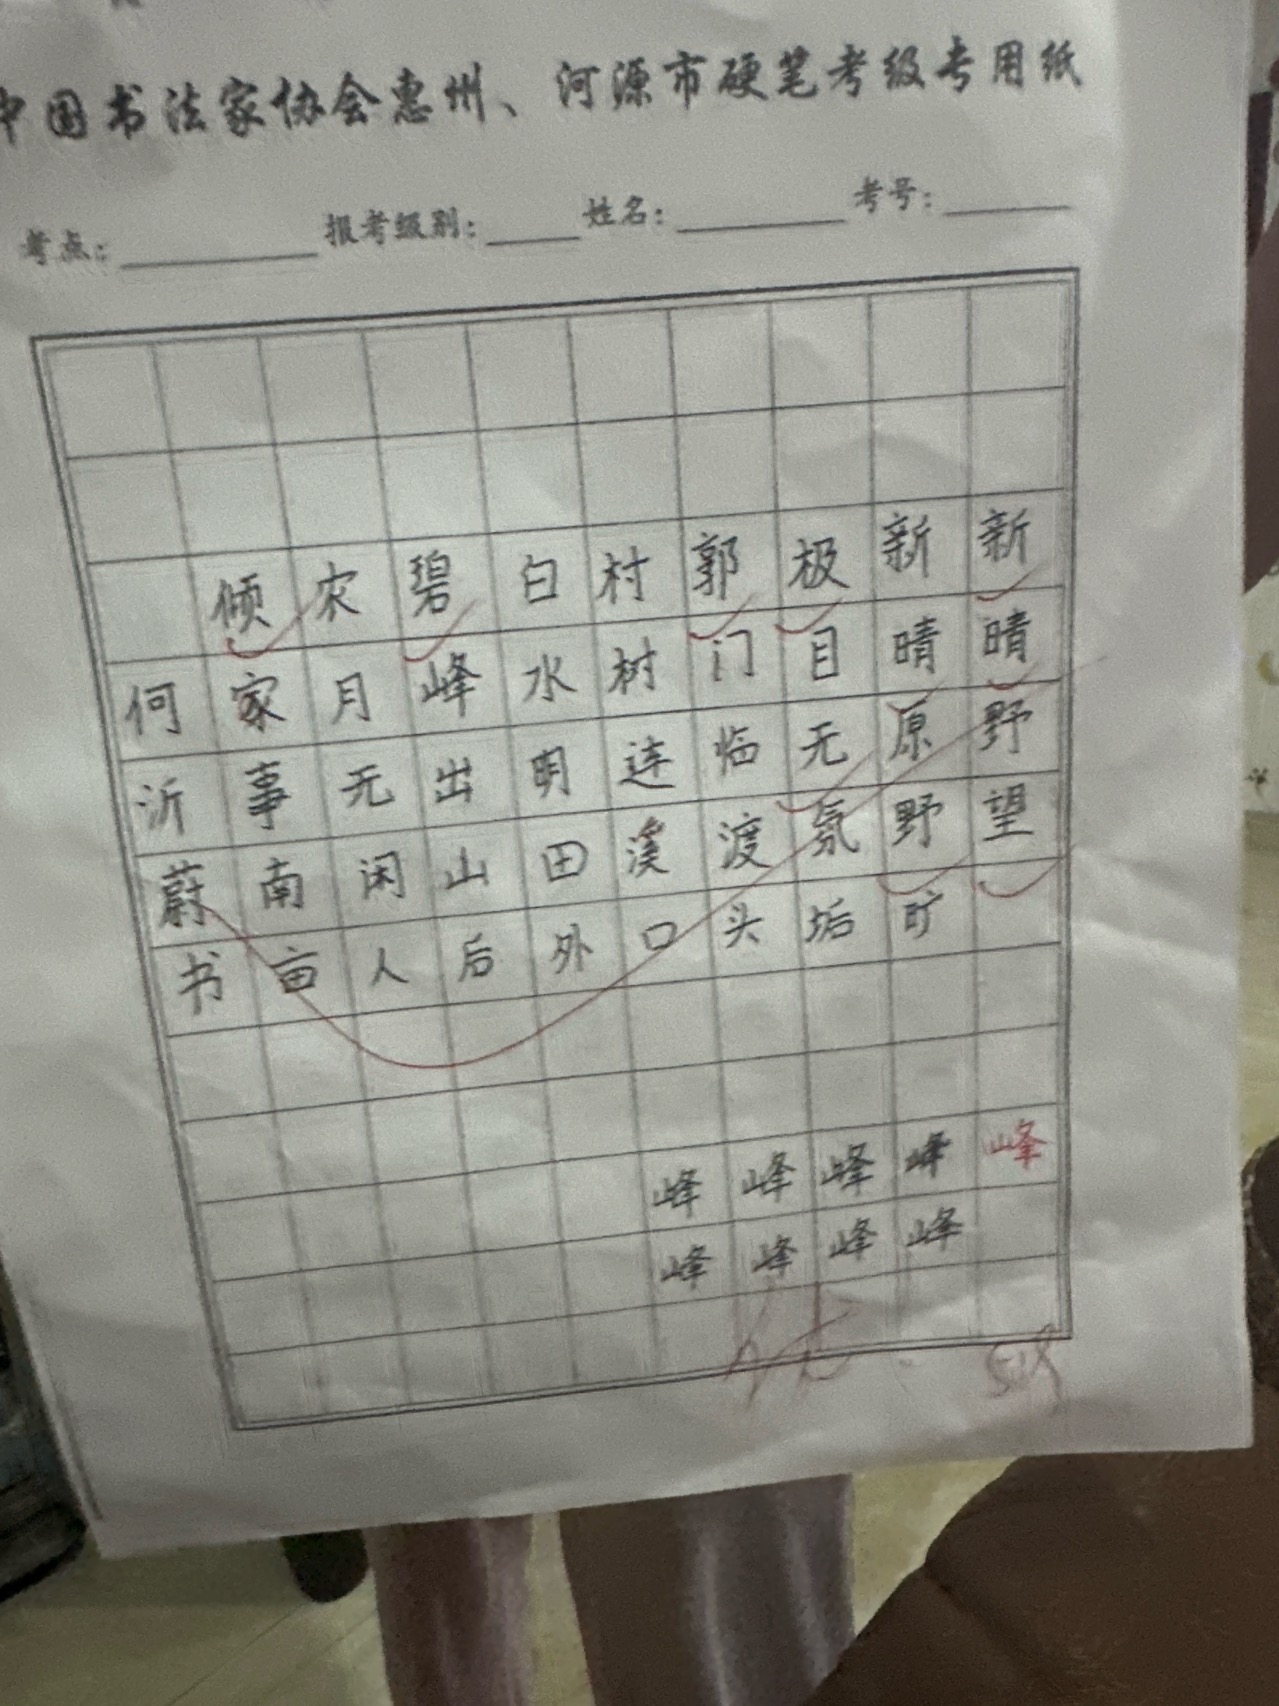 中国书法家协会惠州、河源市硬笔考级专用纸
考点： 报考级别： 姓名： 考号：
新晴野望
新晴原野旷
极目无氛垢
郭门临渡头
村树连溪口
白水明田外
碧峰出山后
农月无闲人
倾家事南亩
何沂蔚书
峰
峰峰
峰峰
峰峰
峰峰